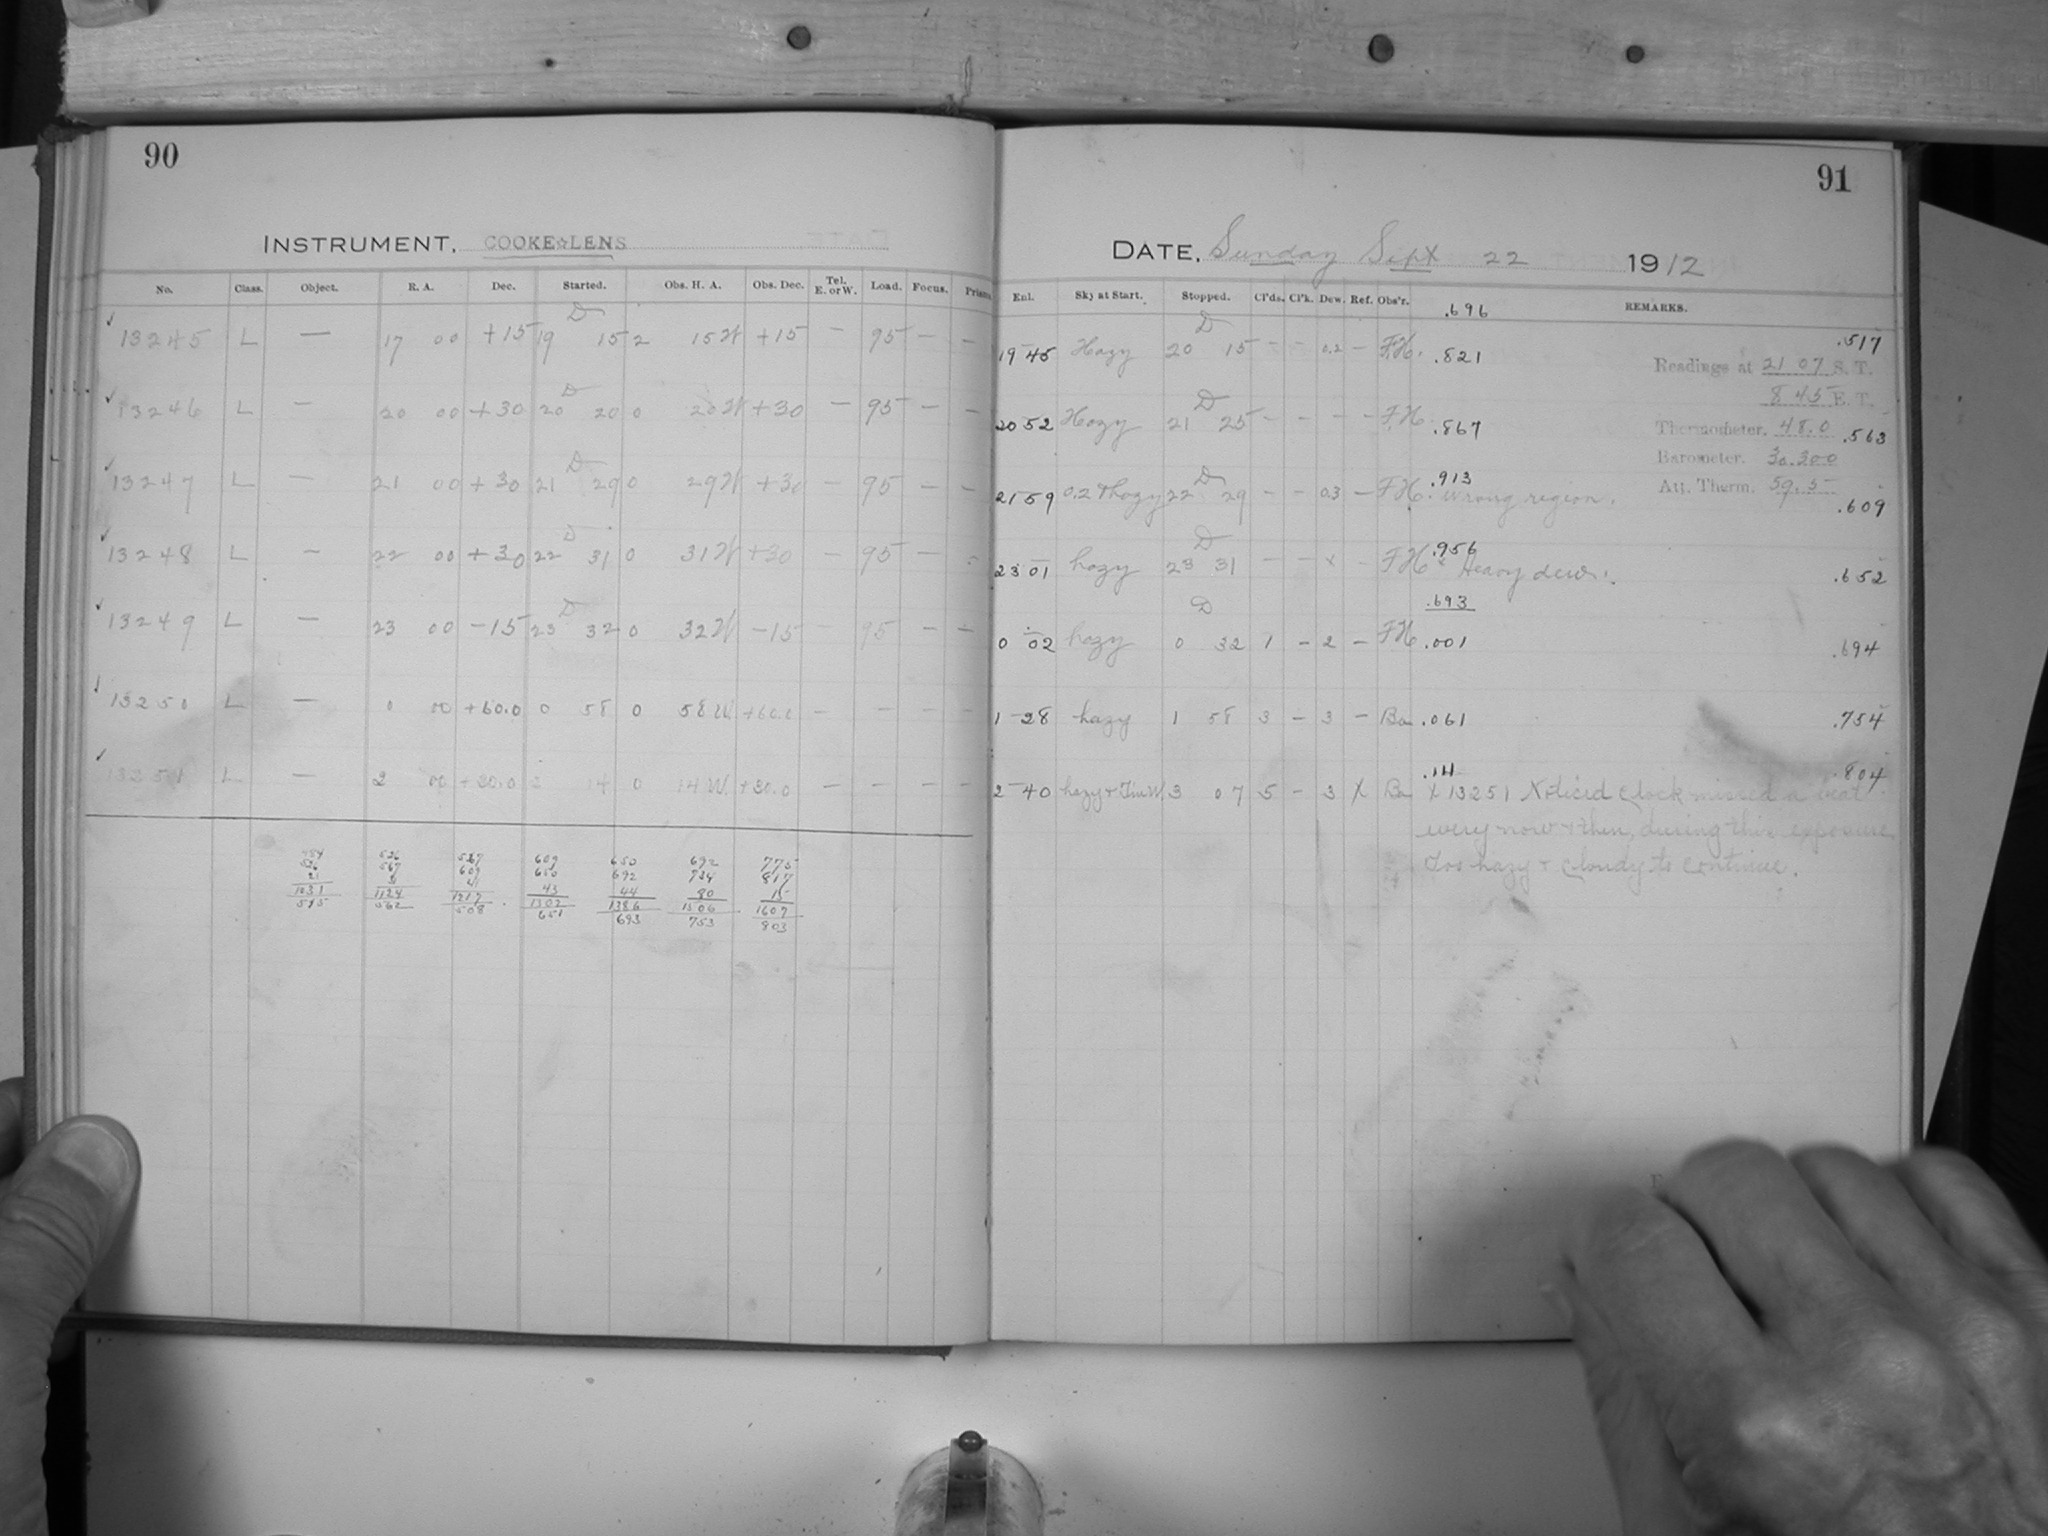 90
INSTRUMENT. COOKE☆LENS
No. Class. Object. R. A. Dec. Started. Obs. H. A. Obs. Dec. Tel. E. or W. Load. Focus. Prisms
D
13245 L — 17 00 +15 19 15 2 15 W +15 — 95 — —
D
13246 L — 20 00 +30 20 20 0 20 W +30 — 95 — —
D
13247 L — 21 00 +30 21 29 0 29 W +30 — 95 — —
D
13248 L — 22 00 +30 22 31 0 31 W +30 — 95 — —
D
13249 L — 23 00 -15 23 32 0 32 W -15 — 95 — —
13250 L — 0 00 +60.0 0 58 0 58 W. +60.0 — — — —
13251 L — 2 00 +30.0 2 14 0 14 W. +30.0 — — — —
526 567 609 650 692 775
567 609 650 692 734 817
21 31 41 43 44 80 15
1031 1124 1217 1302 1386 1506 1607
515 562 508 651 693 753 803
91
DATE. Sunday Sept 22 1912
Enl. Sky at Start. Stopped. Cl'ds. Cl'k. Dew. Ref. Obs'r. REMARKS.
.696
D
19 45 Hazy 20 15 - - 0.2 - F.H. .821 .517
Readings at 21 07 S. T.
8 45 E. T.
D
20 52 Hazy 21 25 - - - - F.H. .867
Thermometer. 48.0 .563
Barometer. 30.300
Att. Therm. 59.5
D
21 59 0.2 + hazy 22 29 - - 0.3 - F.H. .913 Wrong region. .609
D
23 01 hazy 23 31 - - x - F.H. .956 x Heavy dew. .652
.693
D
0 02 hazy 0 32 1 - 2 - F.H. .001 .694
1 28 hazy 1 58 3 - 3 - Bo .061 .754
2 40 hazy + 3 07 5 - 3 X Bo .111 .804
X 13251 Noticed clock missed a beat
every now + then, during this exposure.
Too hazy + cloudy to continue.